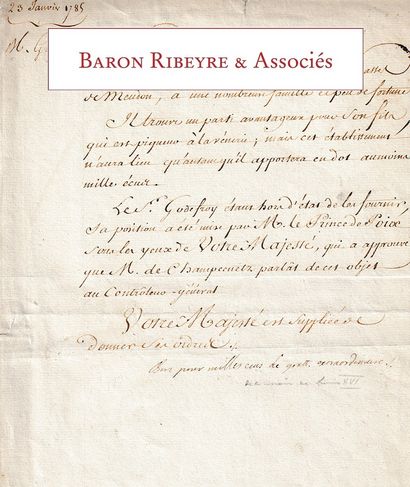 23 Janvier 1785
M. G
BARON RIBEYRE & ASSOCIÉS
de Meudon, a une nombreuse famille et peu de fortune
Il trouve un parti avantageux pour son fils
qui est piqueur à la vénerie; mais cet établissement
n'aura lieu qu'autant qu'il apportera en dot au moins
mille écus.
Le Sr. Godefroy étant hors d'état de les fournir,
sa position a été mise par M. le Prince de Poix
sous les yeux de Votre Majesté, qui a approuvé
que M. de Champcenetz parlât de cet objet
au Contrôleur-général
Votre Majesté est suppliée de
donner ses ordres.
Bon pour mille écus de gratt. extraordinaire.
de la main de Louis XVI